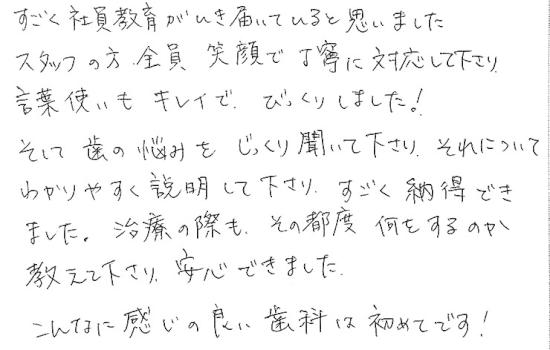 すごく社員教育がいき届いていると思いました
スタッフの方、全員 笑顔で丁寧に対応して下さり、
言葉使いも キレイで、びっくりしました!
そして 歯の悩みを じっくり聞いて下さり、それについて
わかりやすく説明して下さり、すごく納得でき
ました。治療の際も、その都度 何をするのか
教えて下さり、安心できました。
こんなに感じの良い歯科は初めてです!